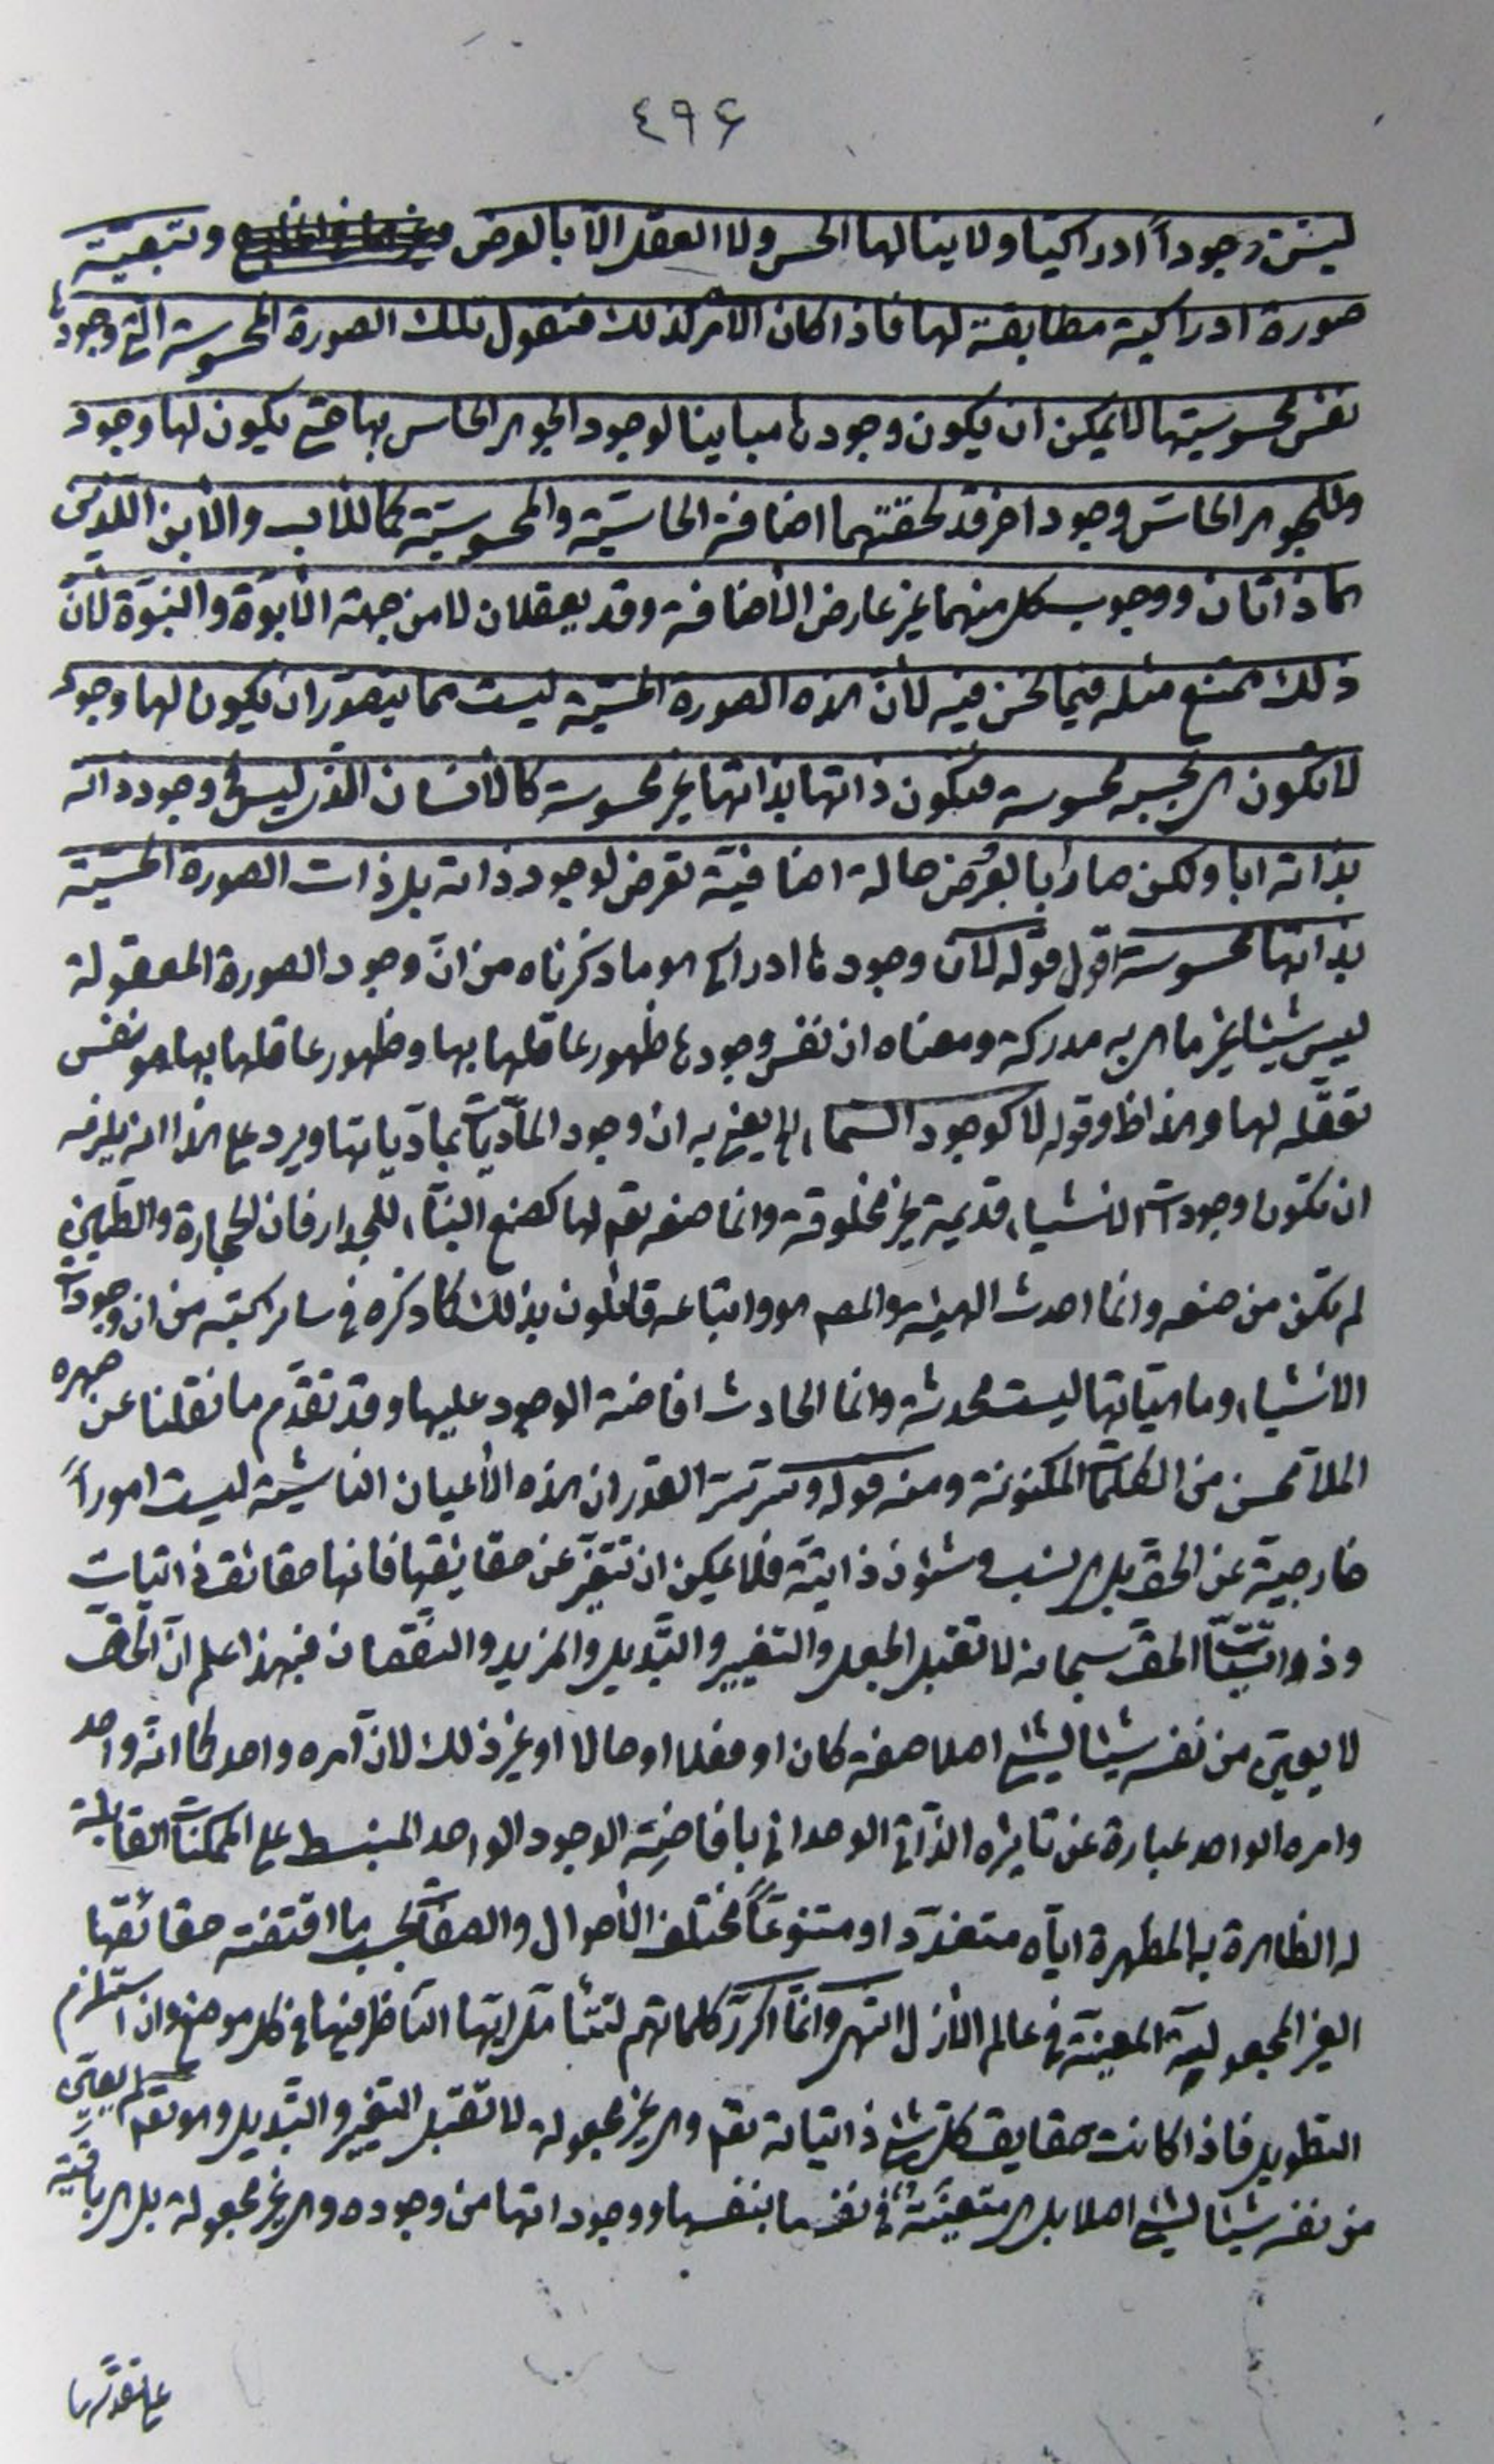 ٤٩۶
ليس وجوداً ادراكيا ولا ينالها الحس ولا العقل الا بالعرض وبتبعيّة
صورة ادراكية مطابقة لها فاذا كان الأمر كذلك فنقول تلك الصورة المحسوسة التي وجودها
نفس محسوسيتها لا يمكن ان يكون وجودها مباينا لوجود الجوهر الحاس بها حتى يكون لها وجود
وللجوهر الحاسّ وجود اخر قد لحقتهما اضافة الحاسّية والمحسوسيّة كما للأب والأبن اللذين
هما ذاتان ووجوب كل منهما غير عارض الأضافة وقد يعقلان لا من جهة الأبوّة والبنوّة لأنّ
ذلك ممتنع مثله فيما نحن فيه لأن هذه الصورة الحسّية ليست مما يتصوّر ان يكون لها وجود
لا تكون هي بحسبه محسوسة فيكون ذاتها بذاتها غير محسوسة كالأنسان الذي ليس في وجود ذاته
بذاته ابا ولكن صار أبا بعُرُض حالة اضافيّة تعرض لوجود ذاته بل ذات الصورة الحسّية
بذاتها محسوسة اقول قوله لأنّ وجودها ادراكي هو ما ذكرناه من انّ وجود الصورة المعقولة
ليس شيئا غير ما هي به مدركة ومعناه ان نفس وجودها ظهور عاقلها بها وظهور عاقلها بها هو نفس
تعقّله لها وهذا ظ وقوله لا كوجود السّماء الخ يعني به ان وجود المادّيات بماديّاتها ويرد على هذا انه يلزمه
ان تكون وجودات الاشياء قديمة غير مخلوقة وانما صنعه تعم لها كصنع البنّاء للجدار فان الحجارة والطّين
لم تكن من صنعه وانما احدث الهيئة والمص هو واتباعه قائلون بذلك كما ذكره في ساير كتبه من ان وجودات
الاشياء وماهيّاتها ليست محدثة وانما الحادث افاضة الوجود عليها وقد تقدّم ما نقلنا عن صهره
الملا محسن من الكلمات المكنونة ومنه قوله وسرّ سرّ القدر ان هذه الأعيان الثابتة ليست اموراً
خارجية عن الحق بل هي نسب وشئون ذاتيّة فلا يمكن ان تتغيّر عن حقايقها فانها حقائق ذاتيات
وذاتيّات الحق سبحانه لا تقبل الجعل والتغيير والتّبديل والمزيد والنّقصان فبهذا اعلم انّ الحقّ
لا يعيّن من نفسه شيئا لشيء اصلا صفة كان او فعلا او حالا او غير ذلك لانّ امره واحد كما انّه واحد
وامره الواحد عبارة عن تأثيره الذّاتي الوحداني بافاضة الوجود الواحد المنبسط على الممكنات القابلة
له الظاهرة به المظهرة ايّاه متعدّدا ومتنوعاً مختلف الأحوال والصفات بحسب ما اقتضته حقائقها
الغير المجعولية المعيّنة في عالم الأزل انتهى وانّما اكرّر كلماتهم لتتأمّل ايّها النّاظر فيها في كل موضع وان استلزم
التطويل فاذا كانت حقايق كلّ شيء ذاتيّاته تعم وهي غير مجعولة لا تقبل التغيير والتّبديل وهو تعم لم يعيّن
من نفسه شيئا لشيء اصلا بل هي متعيّنة في نفسها بنفسها ووجوداتها من وجوده وهي غير مجعولة بل هي باقية
على تقدّرها